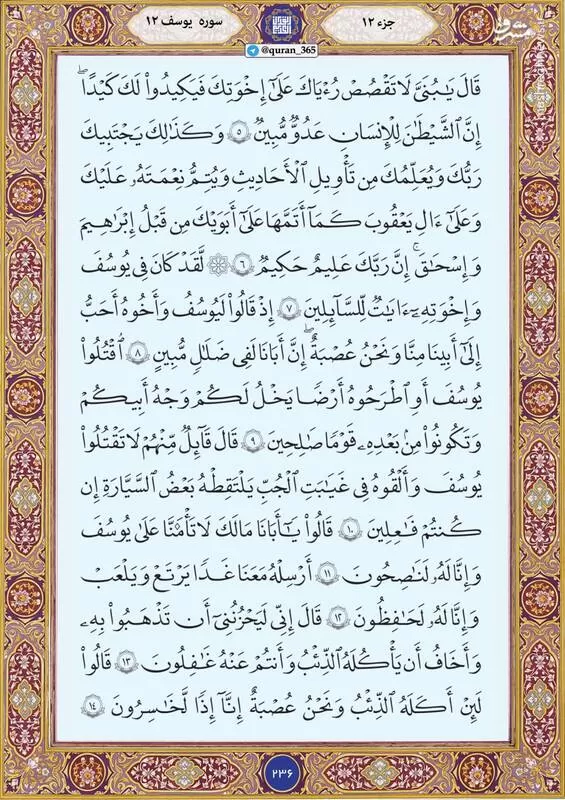 جزء ١٢
سوره يوسف ١٢
@quran_365
قَالَ يَـٰبُنَىَّ لَا تَقۡصُصۡ رُءۡيَاكَ عَلَىٰٓ إِخۡوَتِكَ فَيَكِيدُواْ لَكَ كَيۡدًاۖ
إِنَّ ٱلشَّيۡطَـٰنَ لِلۡإِنسَـٰنِ عَدُوٌّ مُّبِينٌ ۝٥ وَكَذَٰلِكَ يَجۡتَبِيكَ
رَبُّكَ وَيُعَلِّمُكَ مِن تَأۡوِيلِ ٱلۡأَحَادِيثِ وَيُتِمُّ نِعۡمَتَهُۥ عَلَيۡكَ
وَعَلَىٰٓ ءَالِ يَعۡقُوبَ كَمَآ أَتَمَّهَا عَلَىٰٓ أَبَوَيۡكَ مِن قَبۡلُ إِبۡرَٰهِيمَ
وَإِسۡحَـٰقَۚ إِنَّ رَبَّكَ عَلِيمٌ حَكِيمٌ ۝٦ ۞ لَّقَدۡ كَانَ فِى يُوسُفَ
وَإِخۡوَتِهِۦٓ ءَايَـٰتٌ لِّلسَّآئِلِينَ ۝٧ إِذۡ قَالُواْ لَيُوسُفُ وَأَخُوهُ أَحَبُّ
إِلَىٰٓ أَبِينَا مِنَّا وَنَحۡنُ عُصۡبَةٌۚ إِنَّ أَبَانَا لَفِى ضَلَـٰلٍ مُّبِينٍ ۝٨ ٱقۡتُلُواْ
يُوسُفَ أَوِ ٱطۡرَحُوهُ أَرۡضًا يَخۡلُ لَكُمۡ وَجۡهُ أَبِيكُمۡ
وَتَكُونُواْ مِنۢ بَعۡدِهِۦ قَوۡمًا صَـٰلِحِينَ ۝٩ قَالَ قَآئِلٌ مِّنۡهُمۡ لَا تَقۡتُلُواْ
يُوسُفَ وَأَلۡقُوهُ فِى غَيَـٰبَتِ ٱلۡجُبِّ يَلۡتَقِطۡهُ بَعۡضُ ٱلسَّيَّارَةِ إِن
كُنتُمۡ فَـٰعِلِينَ ۝١٠ قَالُواْ يَـٰٓأَبَانَا مَالَكَ لَا تَأۡمَ۫نَّا عَلَىٰ يُوسُفَ
وَإِنَّا لَهُۥ لَنَـٰصِحُونَ ۝١١ أَرۡسِلۡهُ مَعَنَا غَدًا يَرۡتَعۡ وَيَلۡعَبۡ
وَإِنَّا لَهُۥ لَحَـٰفِظُونَ ۝١٢ قَالَ إِنِّى لَيَحۡزُنُنِىٓ أَن تَذۡهَبُواْ بِهِۦ
وَأَخَافُ أَن يَأۡكُلَهُ ٱلذِّئۡبُ وَأَنتُمۡ عَنۡهُ غَـٰفِلُونَ ۝١٣ قَالُواْ
لَئِنۡ أَكَلَهُ ٱلذِّئۡبُ وَنَحۡنُ عُصۡبَةٌ إِنَّآ إِذًا لَّخَـٰسِرُونَ ۝١٤
٢٣۶